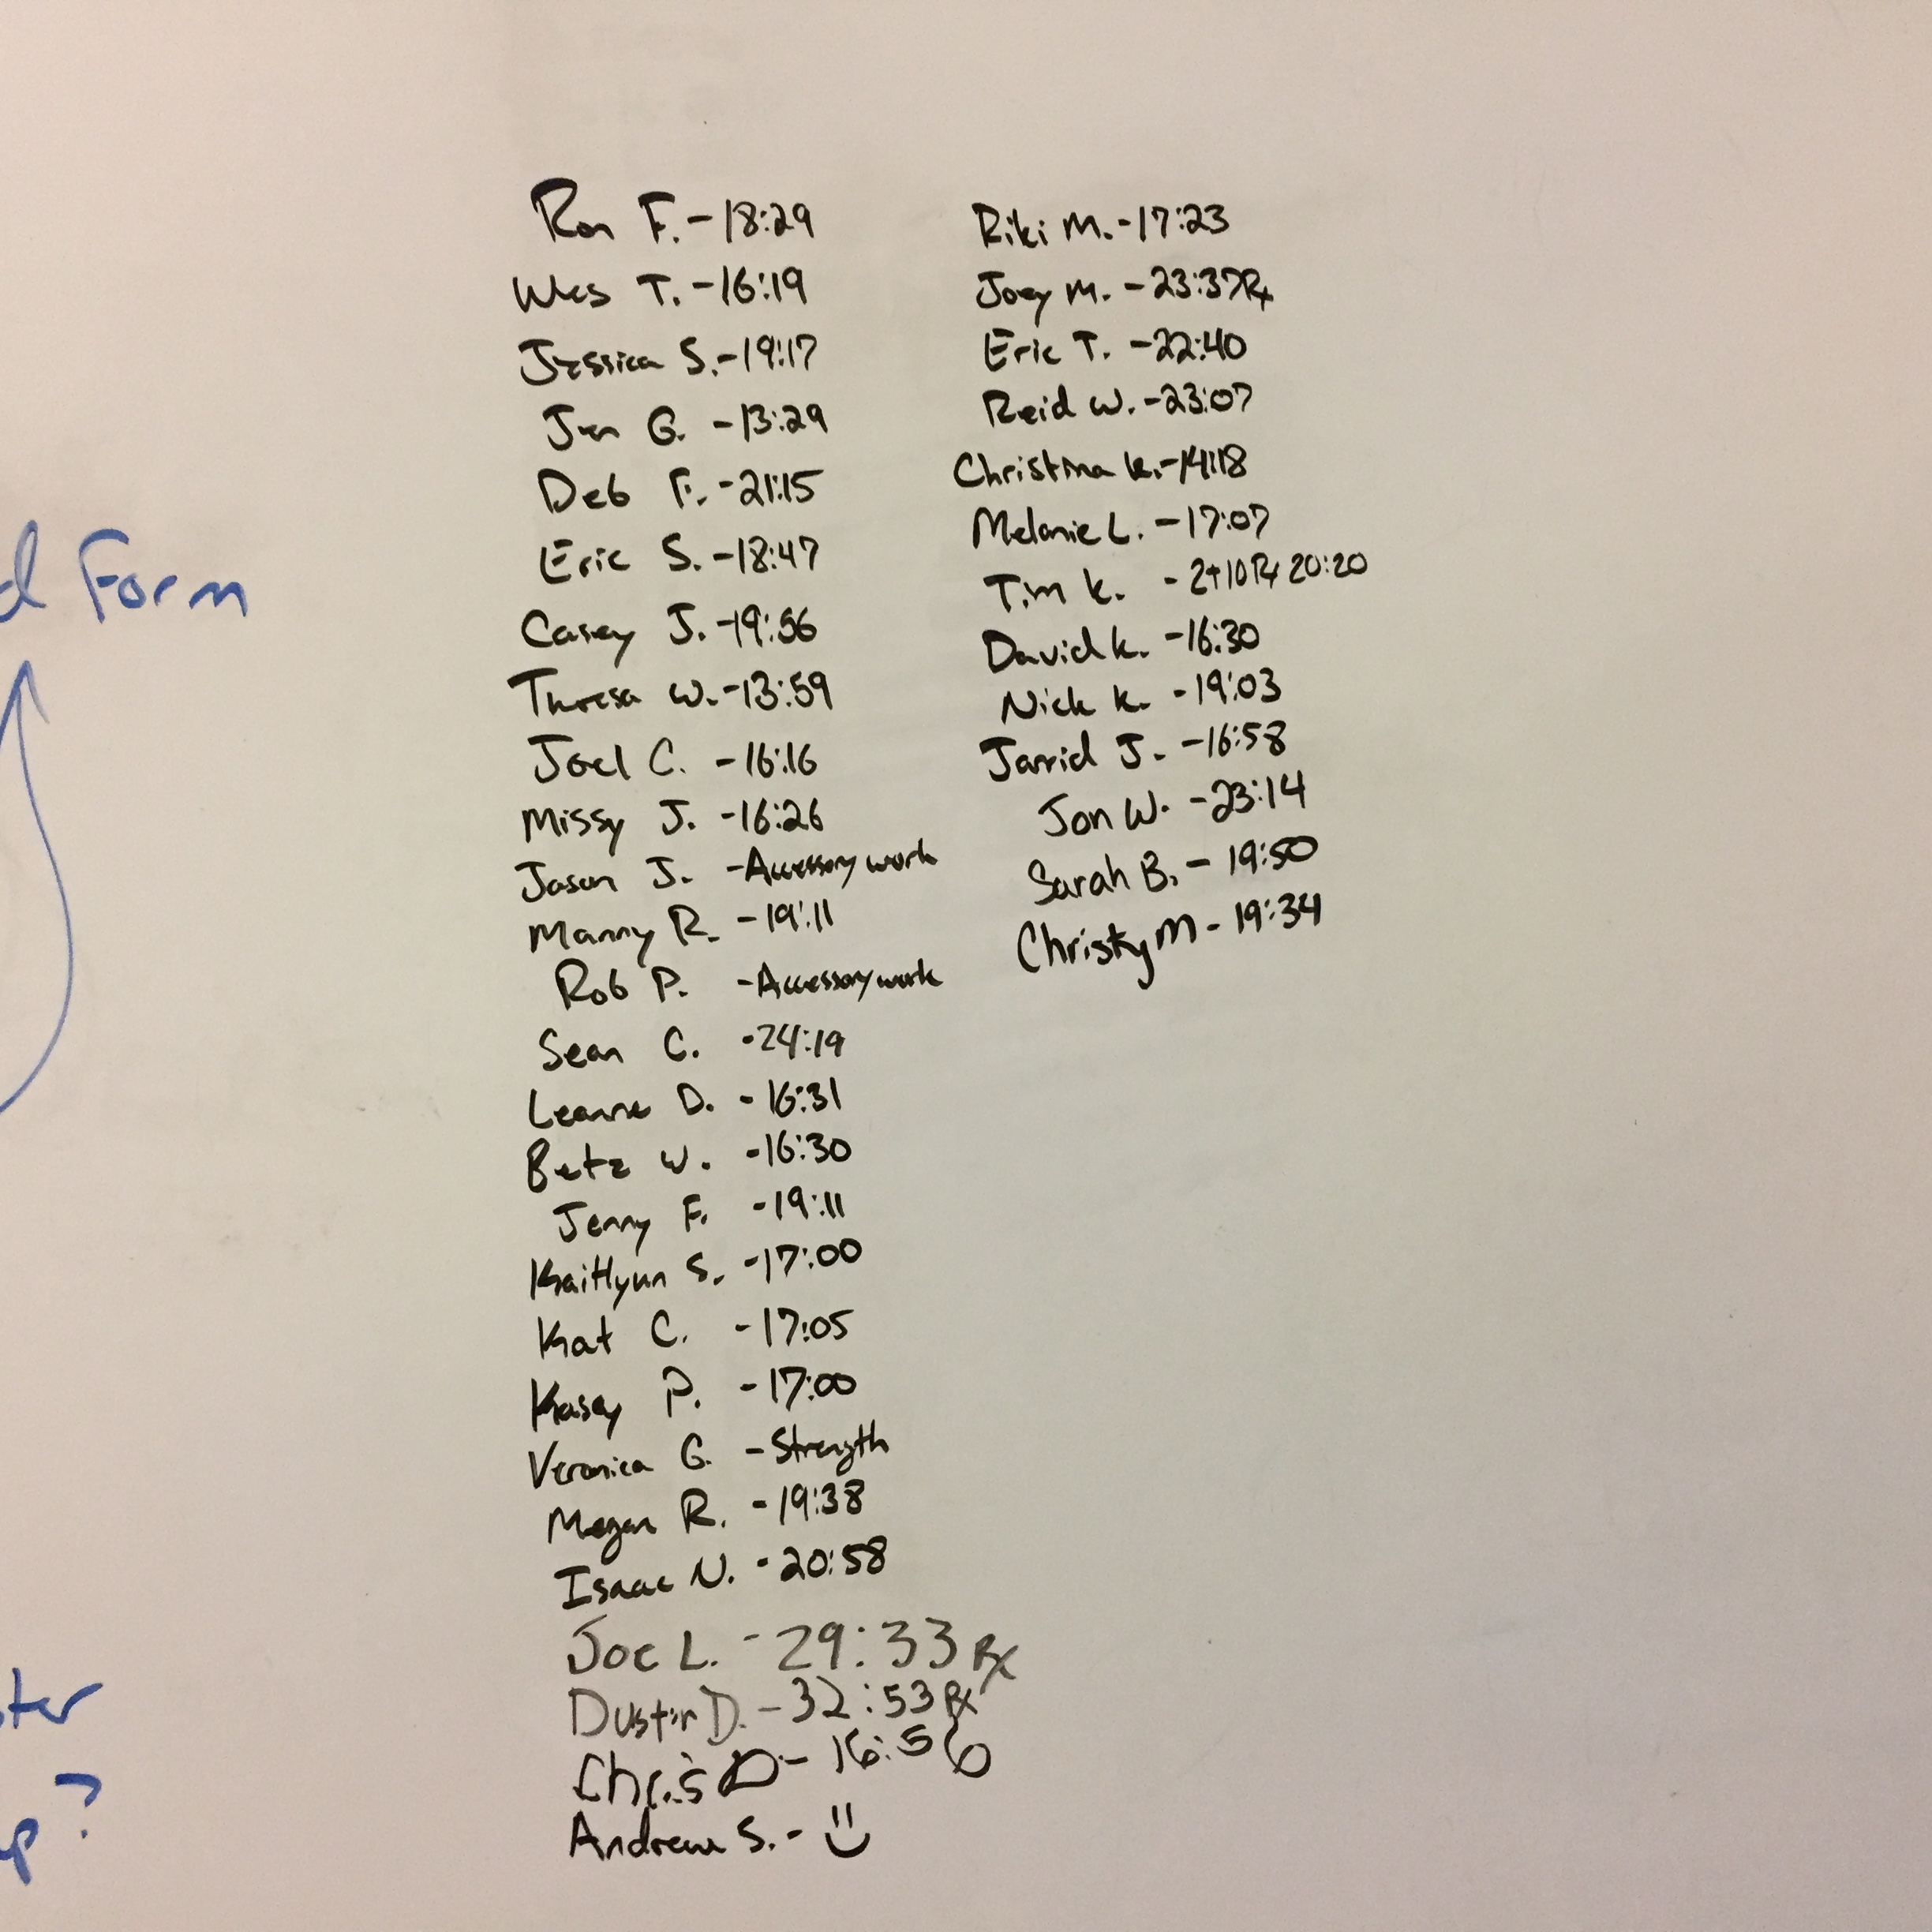 Ron F. - 18:29
Wes T. - 16:19
Jessica S. - 19:17
Jen G. - 13:29
Deb F. - 21:15
Eric S. - 18:47
Casey J. - 19:56
Theresa W. - 13:59
Joel C. - 16:16
Missy J. - 16:26
Jason J. - Accessory work
Manny R. - 19:11
Rob P. - Accessory work
Sean C. - 24:19
Leanne D. - 16:31
Betz W. - 16:30
Jenny F. - 19:11
Kaitlynn S. - 17:00
Kat C. - 17:05
Kasey P. - 17:00
Veronica G. - Strength
Megan R. - 19:38
Isaac N. - 20:58
Joe L. - 29:33 Rx
Dustin D. - 32:53 Rx
Chris D - 16:56
Andrew S. -
Riki M. - 17:23
Joey M. - 23:37 Rx
Eric T. - 22:40
Reid W. - 23:07
Christina K. - 14:18
Melanie L. - 17:07
Tim K. - 2+10 Rx 20:20
David K. - 16:30
Nick K. - 19:03
Jarrid J. - 16:58
Jon W. - 23:14
Sarah B. - 19:50
Christy M - 19:34
d Form
ter
p?